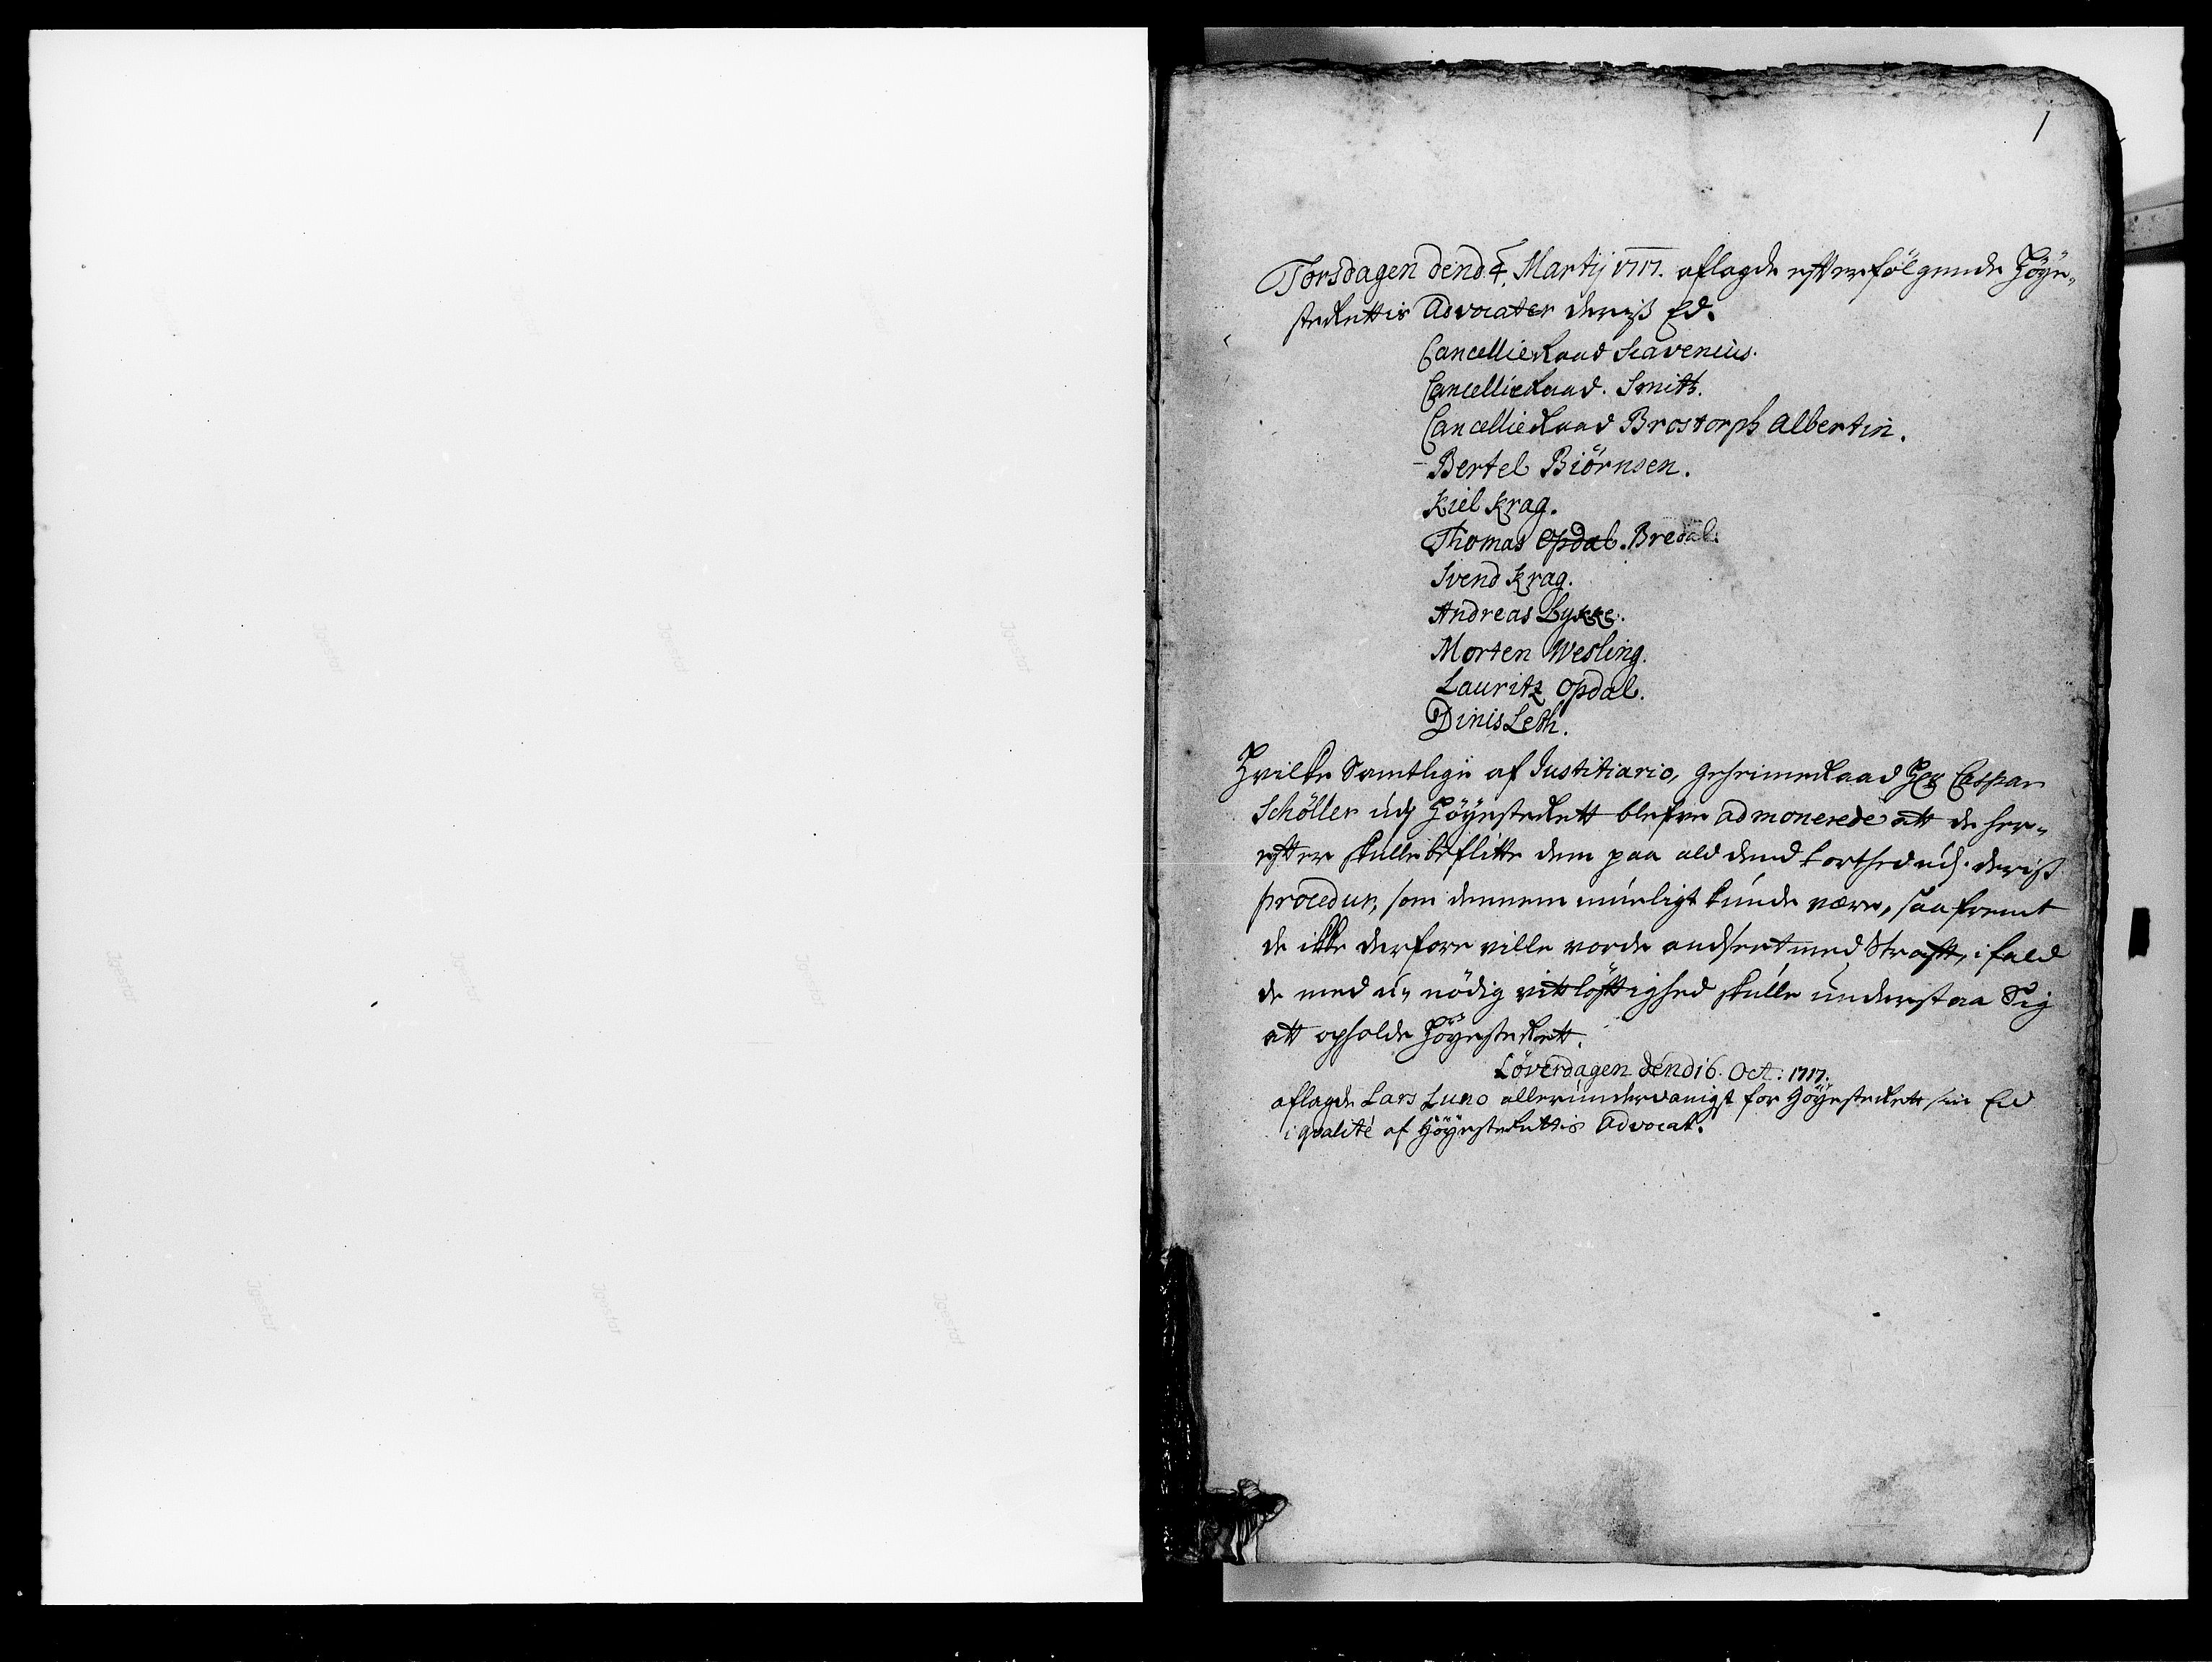 1
Torsdagen dend 4. Martij 1717. aflagde efterfölgende Höye-
steRettis Advocater deriß Ed.
CancellieRaad Scavenius.
CancellieRaad. Smith.
CancellieRaad Brostorph Albertin.
Bertel Biörnsen.
Kiel Krag.
Thomas Opdal. Bredal.
Svend Krag.
Andreas Lykke.
Morten Wesling.
Lauritz Opdal.
Dinis Leth.
Hvilke Samtlige af Justitiario, GeheimeRaad Hr Caspar
Schöller udj HöyesteRett blefve admonerede att de her-
efter skulle beflitte dem paa ald dend korthed udj deriß
procedur, som dennem mueligt kunde være, saa fremt
de ikke derfore ville vorde andseet med Straff, i fald
de med u- nödig vitlöfftighed skulle understaa Sig
att opholde HöyesteRett.
Löverdagen dend 16. Oct: 1717.
aflagde Lars Luno allerunderdanigst for HöyesteRett sin Ed
i qvalité af HöyesteRettis Advocat.